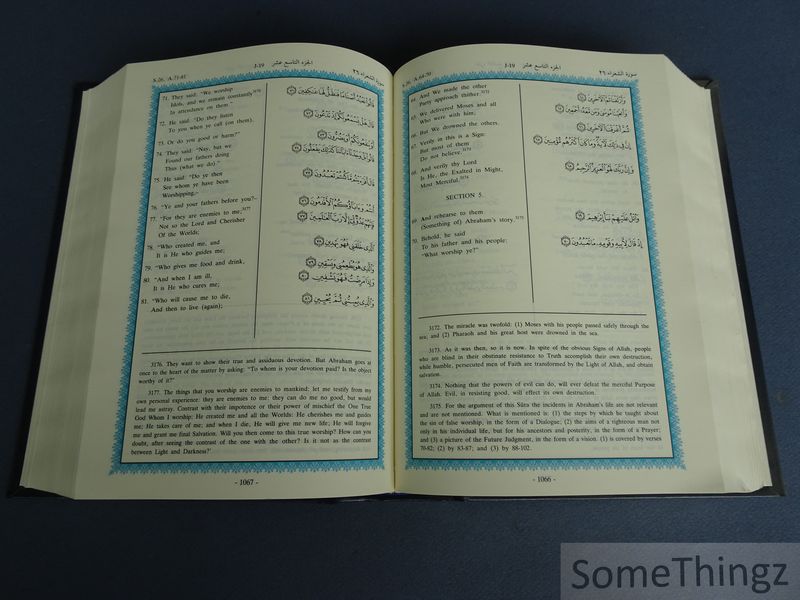 S.26, A.64-70
J-19
الجزء التاسع عشر
سورة الشعراء ٢٦
64. And We made the other
Party approach thither.3171
65. We delivered Moses and all
Who were with him;
66. But We drowned the others.
67. Verily in this is a Sign:
But most of them
Do not believe.3173
68. And verily thy Lord
Is He, the Exalted in Might,
Most Merciful.3174
SECTION 5.
69. And rehearse to them
(Something of) Abraham's story.3175
70. Behold, he said
To his father and his people:
"What worship ye?"
وأزلفنا ثم الآخرين
وأنجينا موسى ومن معه أجمعين
ثم أغرقنا الآخرين
إن في ذلك لآية وما كان أكثرهم مؤمنين
وإن ربك لهو العزيز الرحيم
واتل عليهم نبأ إبراهيم
إذ قال لأبيه وقومه ما تعبدون
3172. The miracle was twofold: (1) Moses with his people passed safely through the
sea; and (2) Pharaoh and his great host were drowned in the sea.
3173. As it was then, so it is now. In spite of the obvious Signs of Allah, people
who are blind in their obstinate resistance to Truth accomplish their own destruction,
while humble, persecuted men of Faith are transformed by the Light of Allah, and obtain
salvation.
3174. Nothing that the powers of evil can do, will ever defeat the merciful Purpose
of Allah. Evil, in resisting good, will effect its own destruction.
3175. For the argument of this Sūra the incidents in Abraham's life are not relevant
and are not mentioned. What is mentioned is: (1) the steps by which he taught about
the sin of false worship, in the form of a Dialogue; (2) the aims of a righteous man not
only in his individual life, but for his ancestors and posterity, in the form of a Prayer;
and (3) a picture of the Future Judgment, in the form of a vision. (1) is covered by verses
70-82; (2) by 83-87; and (3) by 88-102.
- 1066 -
S.26, A.71-81
J-19
الجزء التاسع عشر
سورة الشعراء ٢٦
71. They said: "We worship
Idols, and we remain constantly
In attendance on them."
72. He said: "Do they listen
To you when ye call (on them),
73. Or do you good or harm?"
74. They said: "Nay, but we
Found our fathers doing
Thus (what we do)."
75. He said: "Do ye then
See whom ye have been
Worshipping,–
76. "Ye and your fathers before you?–
77. "For they are enemies to me;3177
Not so the Lord and Cherisher
Of the Worlds;
78. "Who created me, and
It is He who guides me;
79. "Who gives me food and drink,
80. "And when I am ill,
It is He who cures me;
81. "Who will cause me to die,
And then to live (again);
قالوا نعبد أصناما فنظل لها عاكفين
قال هل يسمعونكم إذ تدعون
أو ينفعونكم أو يضرون
قالوا بل وجدنا آباءنا كذلك يفعلون
قال أفرأيتم ما كنتم تعبدون
أنتم وآباؤكم الأقدمون
فإنهم عدو لي إلا رب العالمين
الذي خلقني فهو يهدين
والذي هو يطعمني ويسقين
وإذا مرضت فهو يشفين
والذي يميتني ثم يحيين
3176. They want to show their true and assiduous devotion. But Abraham goes at
once to the heart of the matter by asking: "To whom is your devotion paid? Is the object
worthy of it?"
3177. The things that you worship are enemies to mankind: let me testify from my
own personal experience: they are enemies to me: they can do me no good, but would
lead me astray. Contrast with their impotence or their power of mischief the One True
God Whom I worship: He created me and all the Worlds: He cherishes me and guides
me; He takes care of me; and when I die, He will give me new life; He will forgive
me and grant me final Salvation. Will you then come to this true worship? How can you
doubt, after seeing the contrast of the one with the other? Is it not as the contrast
between Light and Darkness?'
- 1067 -
SomeThingz